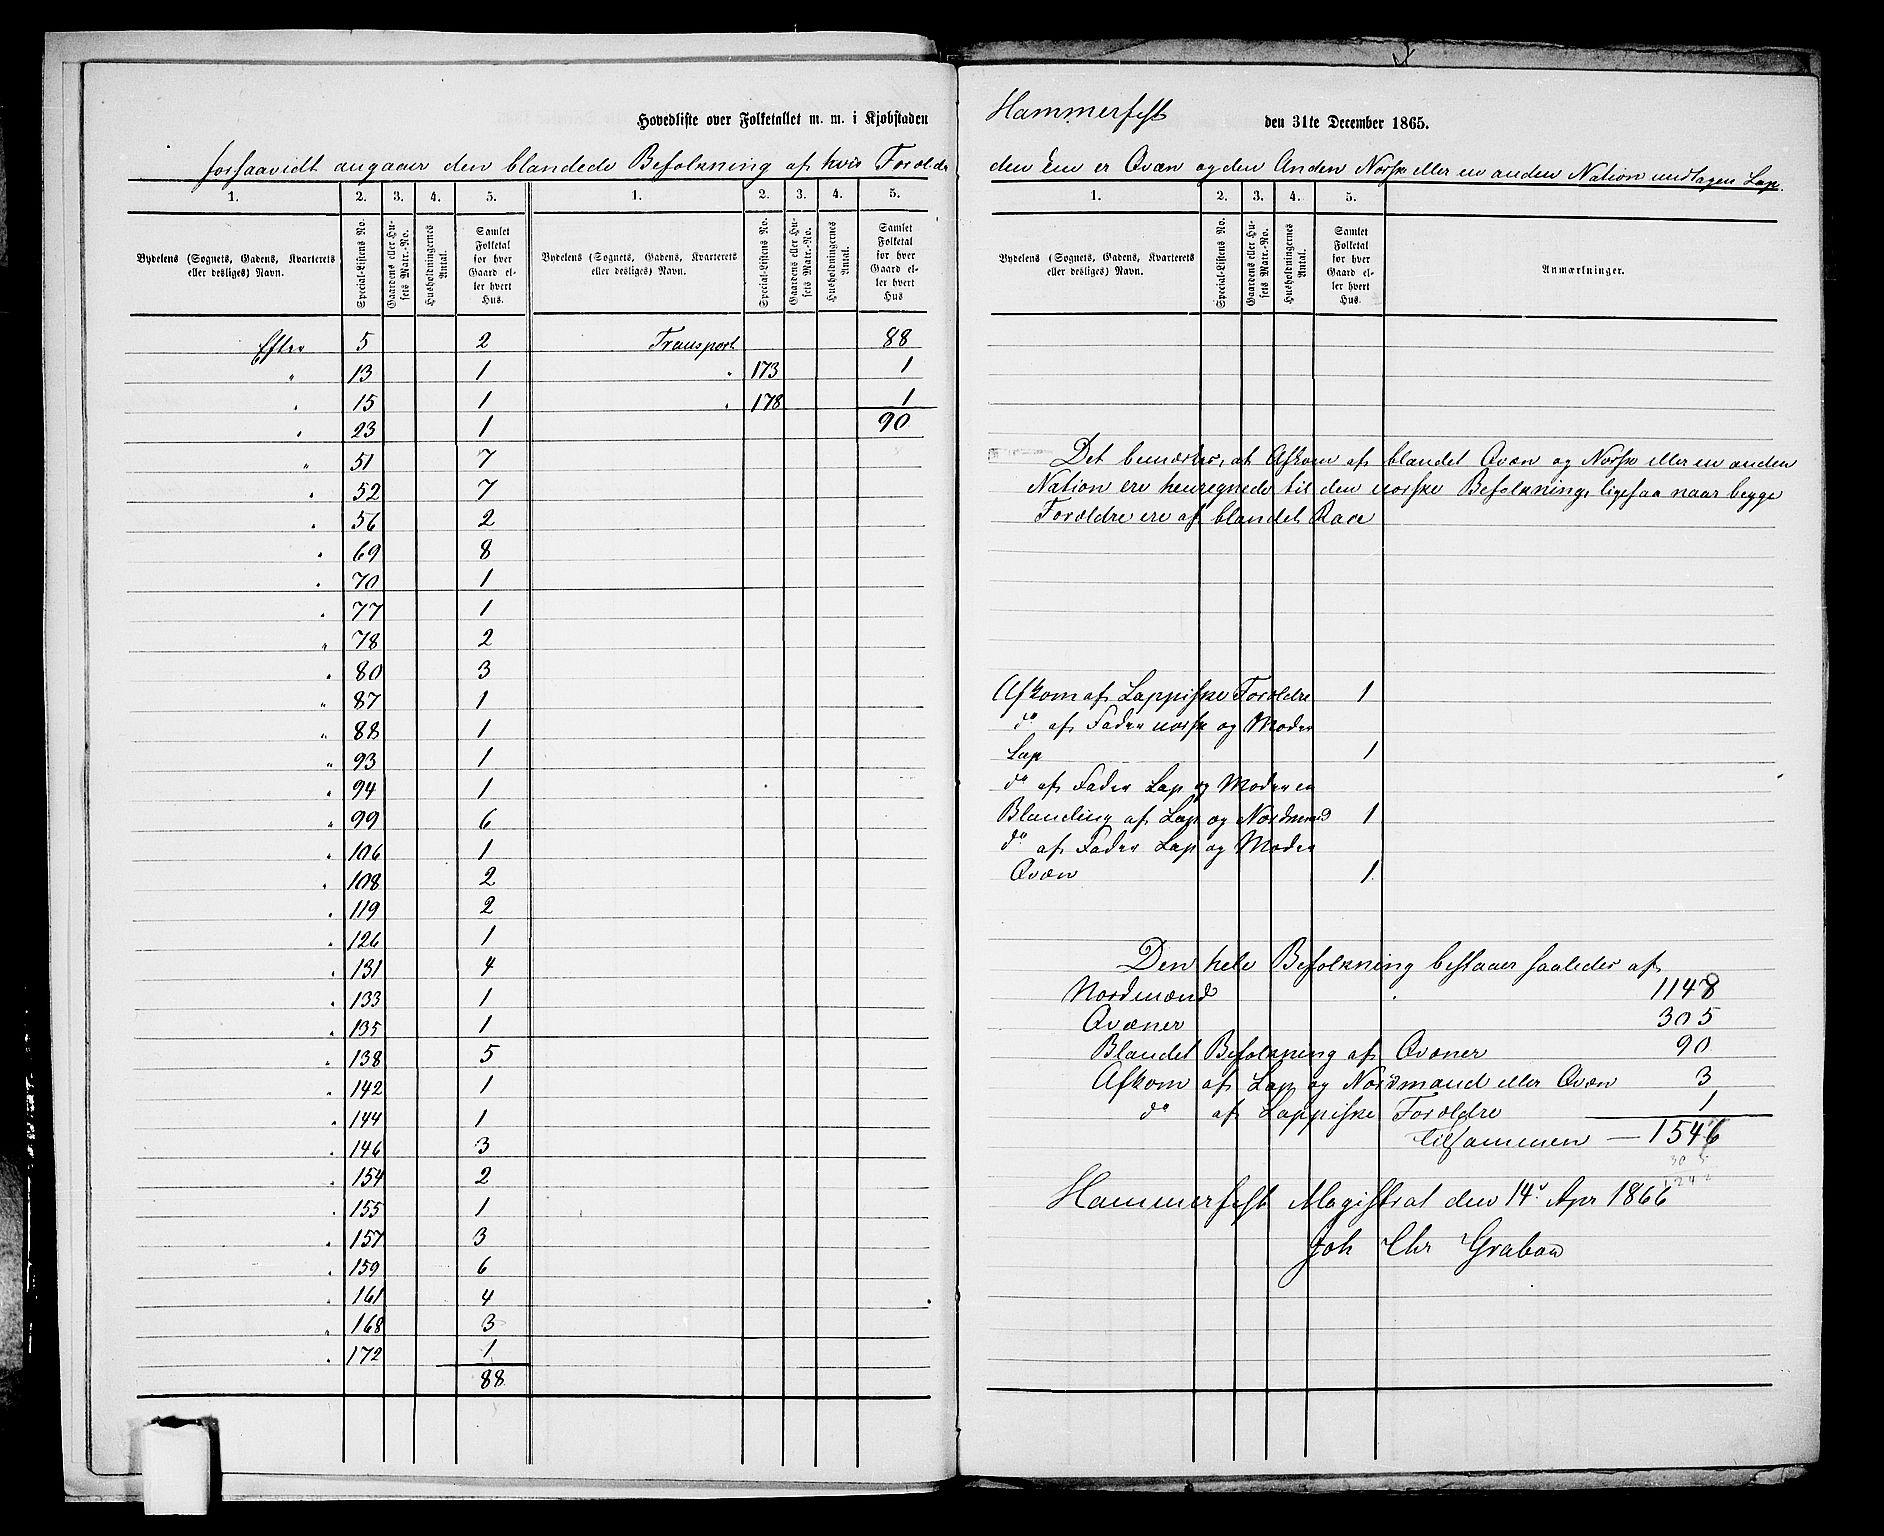 Hovedliste over Folketallet m. m. i Kjøbstaden Hammerfest den 31te December 1865.
forsaavidt angaaer den blandede Befolkning af hvis Forældre den Ene er Qvæn og den Anden Norsk eller en anden Nation undtagen Lap.
1. 2. 3. 4. 5. 1. 2. 3. 4. 5.
Bydelens (Sognets, Gadens, Kvarterets eller desliges) Navn. Special-Listens No. Gaardens eller Husets Matr.-No. Husholdningernes Antal. Samlet Folketal for hver Gaard eller hvert Hus. Bydelens (Sognets, Gadens, Kvarterets eller desliges) Navn. Special-Listens No. Gaardens eller Husets Matr.-No. Husholdningernes Antal. Samlet Folketal for hver Gaard eller hvert Hus
Efter 5 2 Transport 88
" 13 1 " 173 1
" 15 1 " 178 1
" 23 1 90
" 51 7
" 52 7
" 56 2
" 69 8
" 70 1
" 77 1
" 78 2
" 80 3
" 87 1
" 88 1
" 93 1
" 94 1
" 99 6
" 106 1
" 108 2
" 119 2
" 126 1
" 131 4
" 133 1
" 135 1
" 138 5
" 142 1
" 144 1
" 146 3
" 154 2
" 155 1
" 157 3
" 159 6
" 161 4
" 168 3
" 172 1
88
1. 2. 3. 4. 5.
Bydelens (Sognets, Gadens, Kvarterets eller desliges) Navn. Special-Listens No. Gaardens eller Husets Matr.-No. Husholdningernes Antal. Samlet Folketal for hver Gaard eller hvert Hus. Anmærkninger.
Det bemærkes, at Afkom af blandet Qvæn og Norsk eller en anden
Nation ere henregnede til den norske Befolkning, ligesaa naar begge
Forældre ere af blandet Race
Afkom af Lappiske Forældre 1
do af Fader norsk og Moder
Lap 1
do af Fader Lap og Moder en
Blanding af Lap og Nordmand 1
do af Fader Lap og Moder
Qvæn 1
Den hele Befolkning bestaaer saaledes af
Nordmænd 1148
Qvæner 305
Blandet Befolkning af Qvæner 90
Afkom af Lap og Nordmand eller Qvæn 3
do af Lappiske Forældre 1
tilsammen — 1546
Hammerfest Magistrat den 14' Apr 1866
Joh Chr Grabow